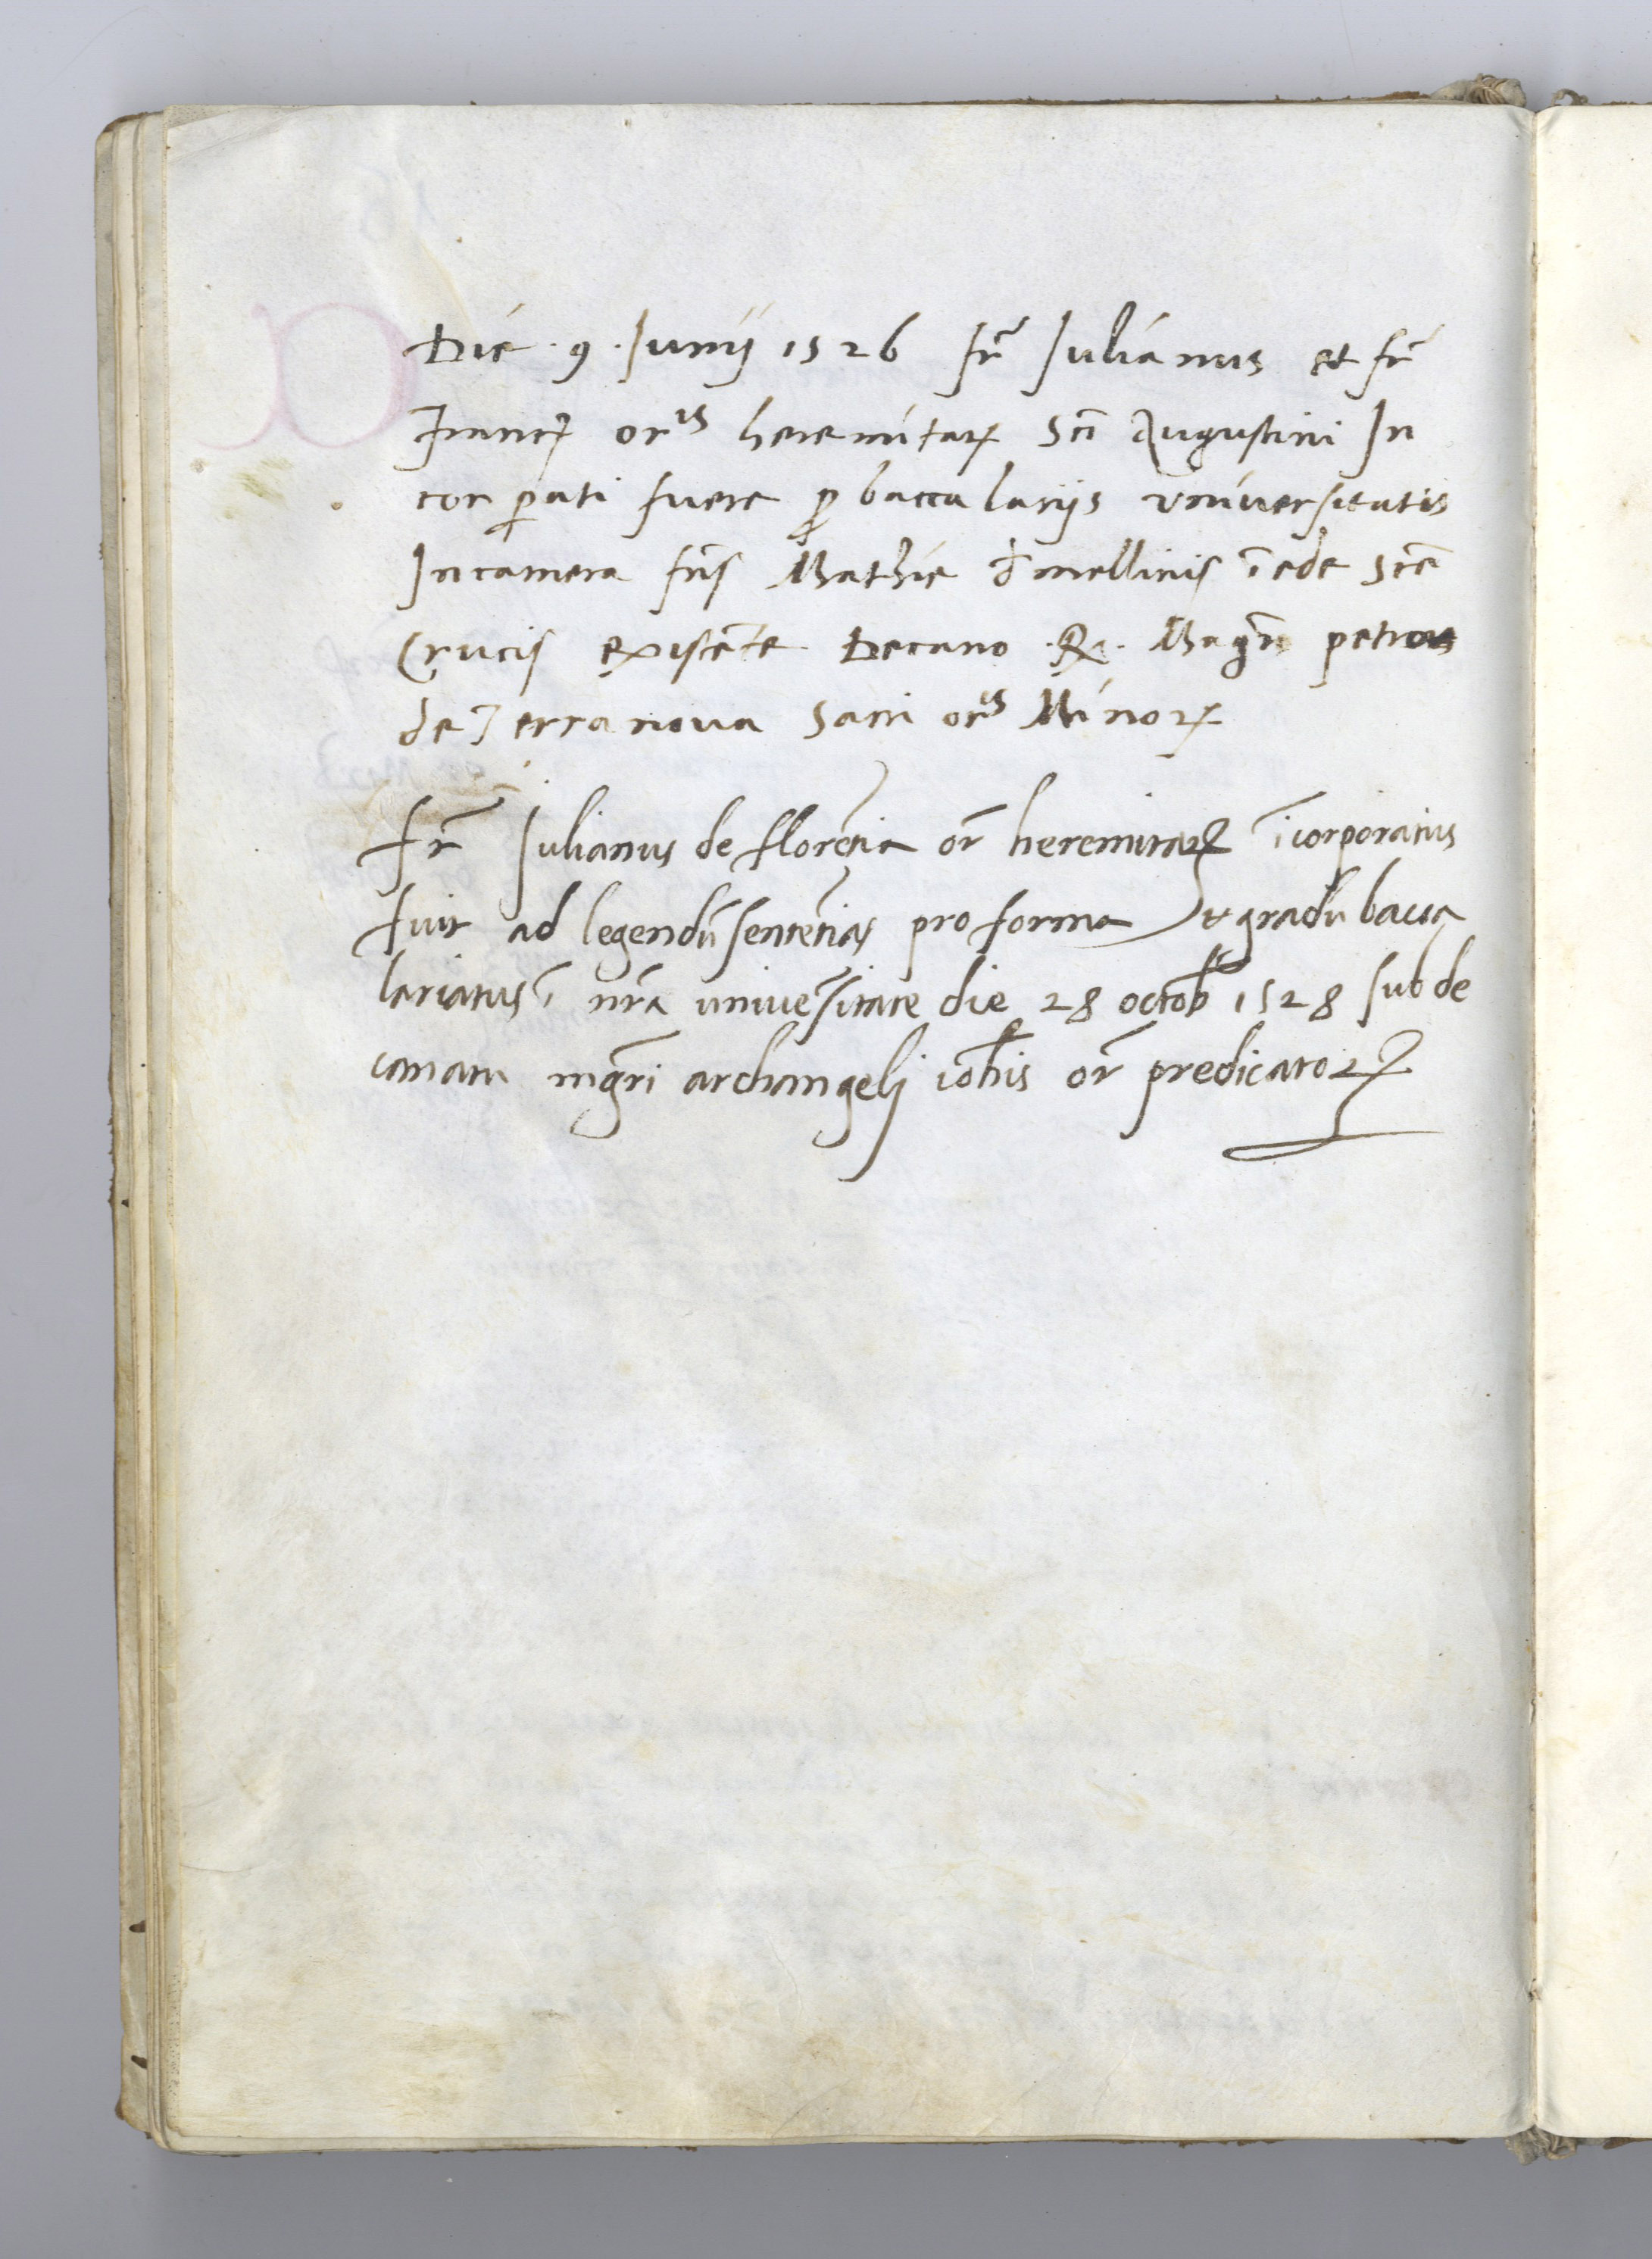 Die · 9 · Iunij 1526 fr̃ Iulianus et fr̃
Francꝰ orͥˢ heremitaꝝ Scĩ Augustini In
cor ꝑati fuere ꝓ baccalarijs vniversitatis
In camera frĩs Mathie d̃ mellinis ĩ ede Scẽ
Crucis existẽte Decano · R. · Magr̃o petro
de Terranova Sacri orͥˢ Minoꝝ
fr̃ Iulianus de florẽtia or̃ heremitaꝝ ĩcorporatus
fuit ad legendũ sentẽtias pro forma et gradũ bacca
lariatus ĩ nrã univer̃sitate die 28 octob̃ 1528 sub de
canatu mgr̃i archangelj ioh̃is or̃ predicatoꝝ